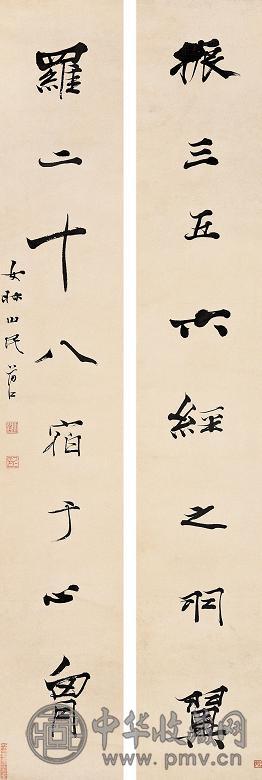 振三五六經之羽翼
羅二十八宿于心胷
女牀山民蔣仁
中华收藏网
www.pmv.cn